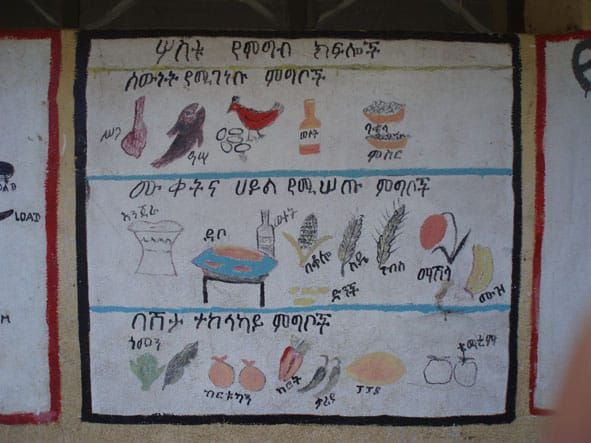 ሦስቱ የምግብ ክፍሎች
ሰውነት የሚገነቡ ምግቦች
ሥጋ
ዓሣ
ወተት
ባቄላ
ምስር
ሙቀትና ሀይል የሚሠጡ ምግቦች
እንጀራ
ዳቦ
በቆሎ
ስንዴ
ገብስ
ማሽላ
ድንች
ሙዝ
በሽታ ተከላካይ ምግቦች
ጎመን
ብርቱካን
ካሮት
ቃሪያ
ፓፓያ
ቲማቲም
LOAD